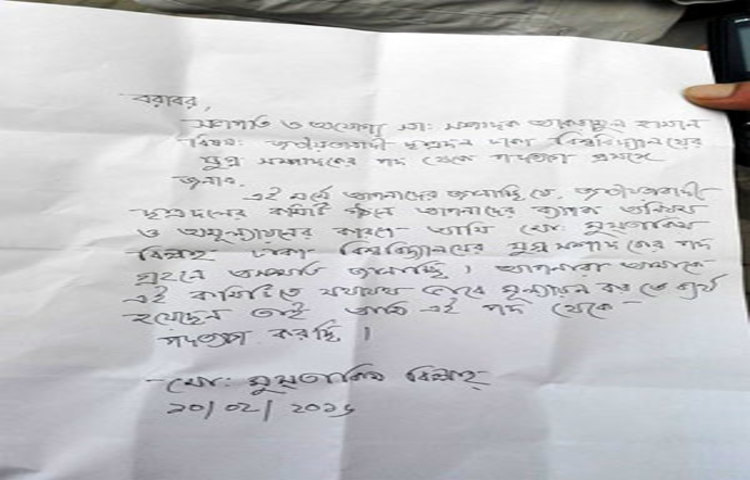 বরাবর,
সভাপতি ও অযোগ্য সাঃ সম্পাদক আকরামুল হাসান
বিষয়: জাতীয়তাবাদী ছাত্রদল ঢাকা বিশ্ববিদ্যালয়ের
যুগ্ম সম্পাদকের পদ থেকে পদত্যাগ প্রসঙ্গে
জনাব,
এই মর্মে আপনাদের জানাচ্ছি যে, জাতীয়তাবাদী
ছাত্রদলের কমিটি গঠনে আপনাদের ব্যাপক অনিয়ম
ও অমূল্যায়নের কারণে আমি মো: মুসতাকিম
বিল্লাহ ঢাকা বিশ্ববিদ্যালয়ের যুগ্ম সম্পাদকের পদ
গ্রহনে অসম্মতি জানাচ্ছি। আপনারা আমাকে
এই কমিটিতে যথাযথ ভাবে মূল্যায়ন করতে ব্যর্থ
হয়েছেন তাই আমি এই পদ থেকে
পদত্যাগ করছি।
মো: মুসতাকিম বিল্লাহ
১০/০২/২০১৬